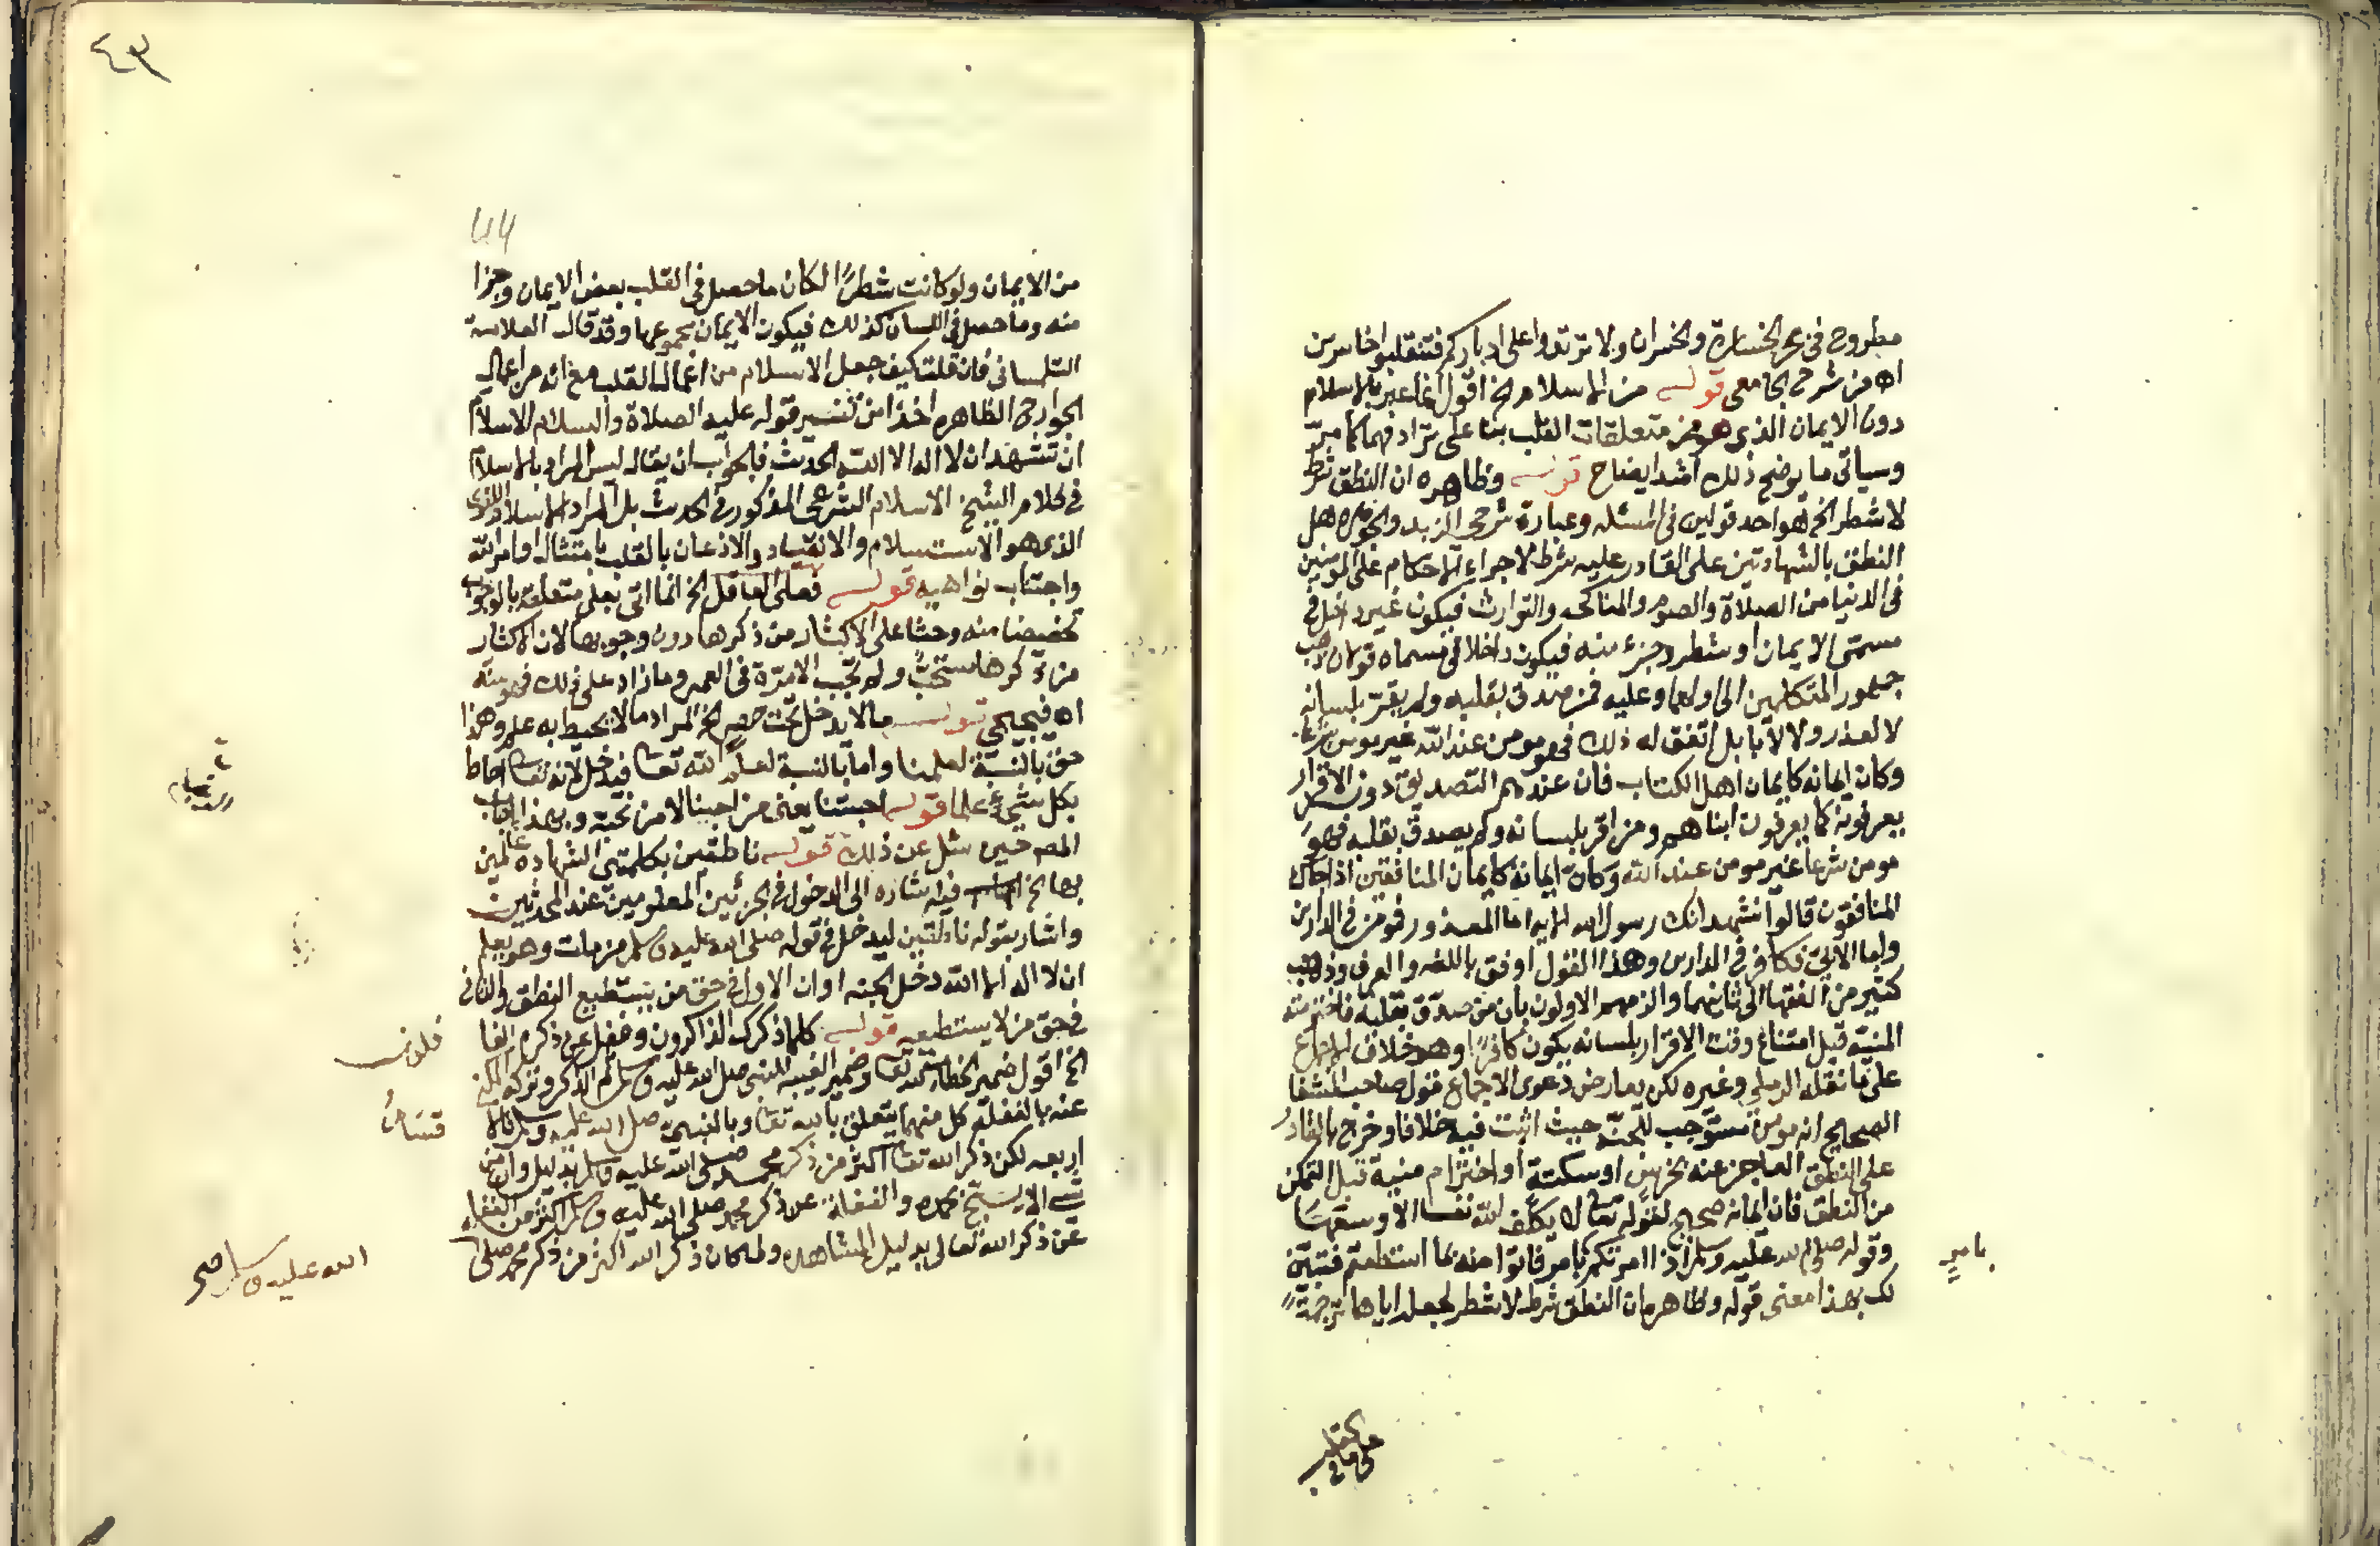 مطروح في بحر الخسارة والخسران ولا ترتدوا على ادباركم فتنقلبوا خاسرين
اه من شرح الجامعي قوله من الاسلام الخ اقول انما عبر بالاسلام
دون الايمان الذي هو من متعلقات القلب بنا على ترادفهما كما مر
وسياتي ما يوضح ذلك اشد ايضاح قوله وظاهره ان النطق شرط
لا شطر الخ هو احد قولين في المسئله وعبارة شرحي الزبد والجوهره هل
النطق بالشهادتين على القادر عليه شرط لاجراء الاحكام على المومنين
في الدنيا من الصلاة والصوم والمناكحه والتوارث فيكون غير داخل في
مسمى الايمان او شطر وجزء منه فيكون داخلا في مسماه قولان ذهب
جمهور المتكلمين الى اولهما وعليه فمن صدق بقلبه ولم يقر بلسانه
لا لعذر ولا لابا بل اتفق له ذلك فهو مومن عند الله غير مومن شرعا
وكان ايمانه كايمان اهل الكتاب فان عندهم التصديق دون الاقرار
يعرفونه كما يعرفون ابناهم ومن اقر بلسانه ولم يصدق بقلبه فهو
مومن شرعا غير مومن عند الله وكان ايمانه كايمان المنافقين اذا جاك
المنافقون قالوا نشهد انك رسول الله الايه اما المعذور فمومن في الدارين
واما الابي فكافر في الدارين وهذا القول اوفق باللغه والعرف وذهب
كثير من الفقها الى ثانيهما والزمهم الاولون بان من صدق بقلبه فاخترمته
المنية قبل اتساع وقت الاقرار بلسانه يكون كافرا وهو خلاف الاجماع
على ما نقله الرملي وغيره لكن يعارض دعوى الاجماع قول صاحب الشفا
الصحيح انه مومن مستوجب للجنه حيث اثبت فيه خلافا وخرج بالقادر
على النطق العاجز عنه لخرس او سكتة او اخترام منية قبل التمكن
من النطق فان ايمانه صحيح لقوله تعالى لا يكلف الله نفسا الا وسعها
وقوله صلى الله عليه وسلم اذا امرتكم بامر فاتوا منه ما استطعتم فتبين
لك بهذا معنى قوله وظاهره ان النطق شرط لا شطر لجعله اياها ترجمة
بامر
على ما في القلب
٤٣
من الايمان ولو كانت شطرا لكان ما حصل في القلب بعض الايمان وجزا
منه وما حصل في اللسان كذلك فيكون الايمان مجموعهما وقد قال العلامة
التلمساني فان قلت كيف جعل الاسلام من اعمال القلب مع انه من اعمال
الجوارح الظاهره اخذا من تفسير قوله عليه الصلاة والسلام الاسلام
ان تشهد ان لا اله الا الله الحديث فالجواب ان يقال ليس المراد بالاسلام
في كلام الشيخ الاسلام الشرعي المذكور في الحديث بل المراد الاسلام اللغوي
الذي هو الاستسلام والانقياد والاذعان بالقلب بامتثال اوامر الله
واجتناب نواهيه قوله فعلى العاقل الخ انما اتى بعلى متعلقة بالوجوب
تحضيضا منه وحثا على الاكثار من ذكرها دون وجوبها لان الاكثار
من ذكرها مستحب ولم تجب الا مرة في العمر وما زاد على ذلك فهو سنه
اه فيجيجي قوله ما لا يدخل تحت حصر الخ المراد ما لا يحيط به علم وهذا
حق بالنسبة لعلمنا واما بالنسبة لعلم الله تعالى فيدخل لانه تعالى احاط
بكل شيء علما قوله احبتنا يعني من احبنا لا من نحبه وبهذا اجاب
المصـ حين سئل عن ذلك قوله ناطقين بكلمتي الشهاده عالمين
بها الخ فيه اشاره الى الدخول في الجزئين المعلومين عند المحدثين
واشار بقوله ناطقين ليدخل في قوله صلى الله عليه وسلم من مات وهو يعلم
ان لا اله الا الله دخل الجنه او ان الاول في حق من يستطيع النطق والثاني
في حق من لا يستطيعه قوله كلما ذكرك الذاكرون وغفل عن ذكره الغا
الخ اقول ضمير الخطاب لله تعالى وضمير الغيبه للنبي صلى الله عليه وسلم ثم الذكر وتركه المكني
عنه بالغفلة كل منهما يتعلق بالله تعالى وبالنبي صلى الله عليه وسلم فالا
اربعه لكن ذكر الله تعالى اكثر من ذكر محمد صلى الله عليه وسلم بدليل وان من
شي الا يسبح بحمده والغفلة عن ذكر محمد صلى الله عليه وسلم اكثر من الغفله
عن ذكر الله تعالى بدليل المشاهده ولما كان ذكر الله اكثر من ذكر محمد صلى
فلون
قسام
الله عليه وسلم صح